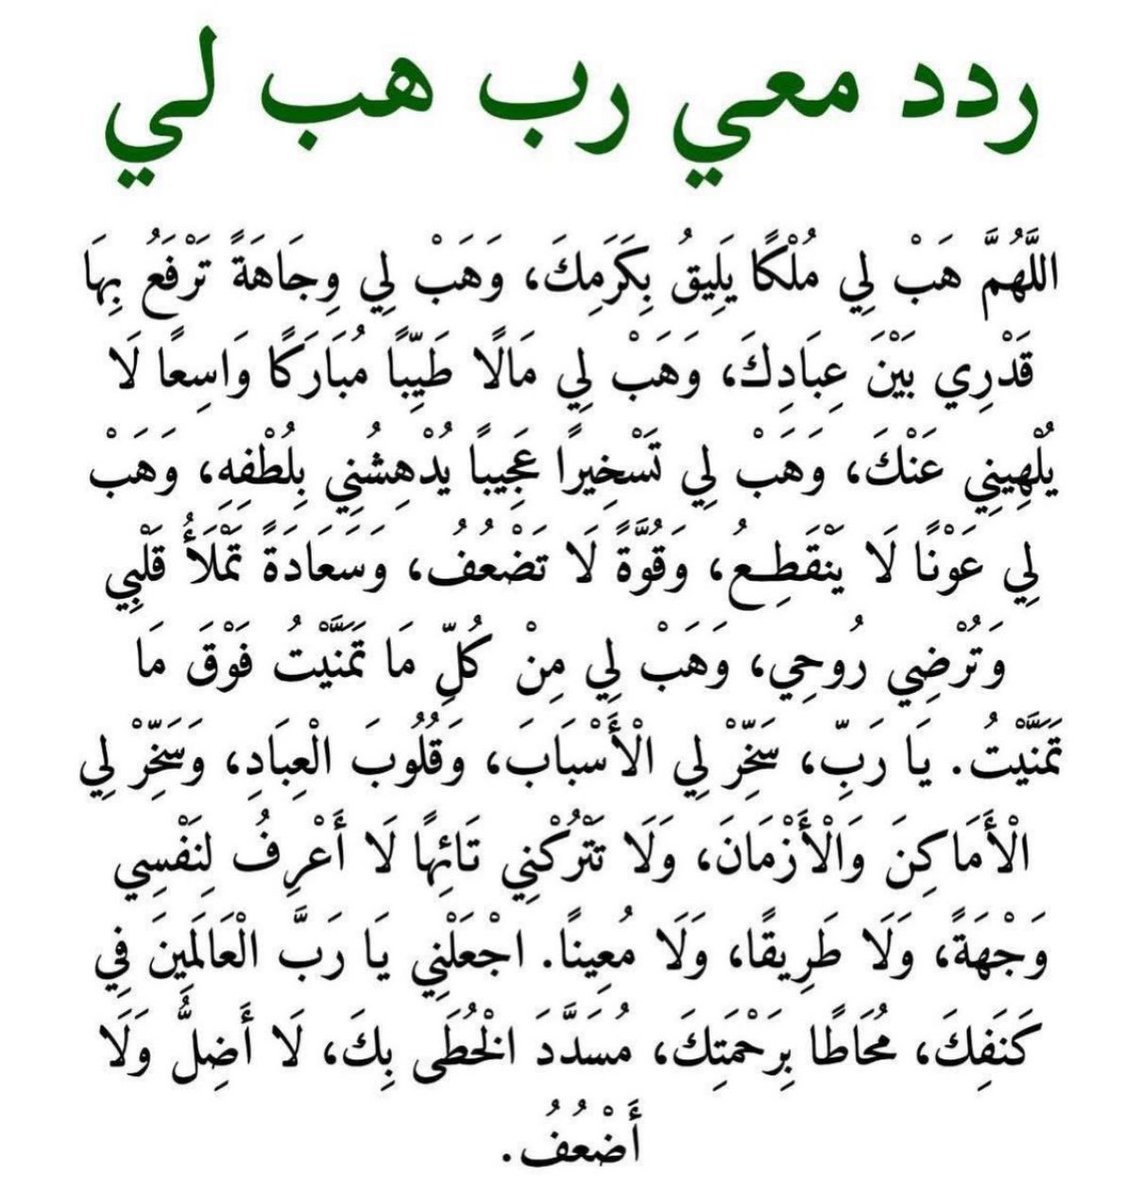 ردد معي رب هب لي
اللَّهُمَّ هَبْ لِي مُلْكًا يَلِيقُ بِكَرَمِكَ، وَهَبْ لِي وِجَاهَةً تَرْفَعُ بِهَا
قَدْرِي بَيْنَ عِبَادِكَ، وَهَبْ لِي مَالًا طَيِّبًا مُبَارَكًا وَاسِعًا لَا
يُلْهِينِي عَنْكَ، وَهَبْ لِي تَسْخِيرًا عَجِيبًا يُدْهِشُنِي بِلُطْفِهِ، وَهَبْ
لِي عَوْنًا لَا يَنْقَطِعُ، وَقُوَّةً لَا تَضْعُفُ، وَسَعَادَةً تَمْلَأُ قَلْبِي
وَتُرْضِي رُوحِي، وَهَبْ لِي مِنْ كُلِّ مَا تَمَنَّيْتُ فَوْقَ مَا
تَمَنَّيْتُ. يَا رَبِّ، سَخِّرْ لِي الْأَسْبَابَ، وَقُلُوبَ الْعِبَادِ، وَسَخِّرْ لِي
الْأَمَاكِنَ وَالْأَزْمَانَ، وَلَا تَتْرُكْنِي تَائِهًا لَا أَعْرِفُ لِنَفْسِي
وَجْهَةً، وَلَا طَرِيقًا، وَلَا مُعِينًا. اجْعَلْنِي يَا رَبَّ الْعَالَمِينَ فِي
كَنَفِكَ، مُحَاطًا بِرَحْمَتِكَ، مُسَدَّدَ الْخُطَى بِكَ، لَا أَضِلُّ وَلَا
أَضْعُفُ.